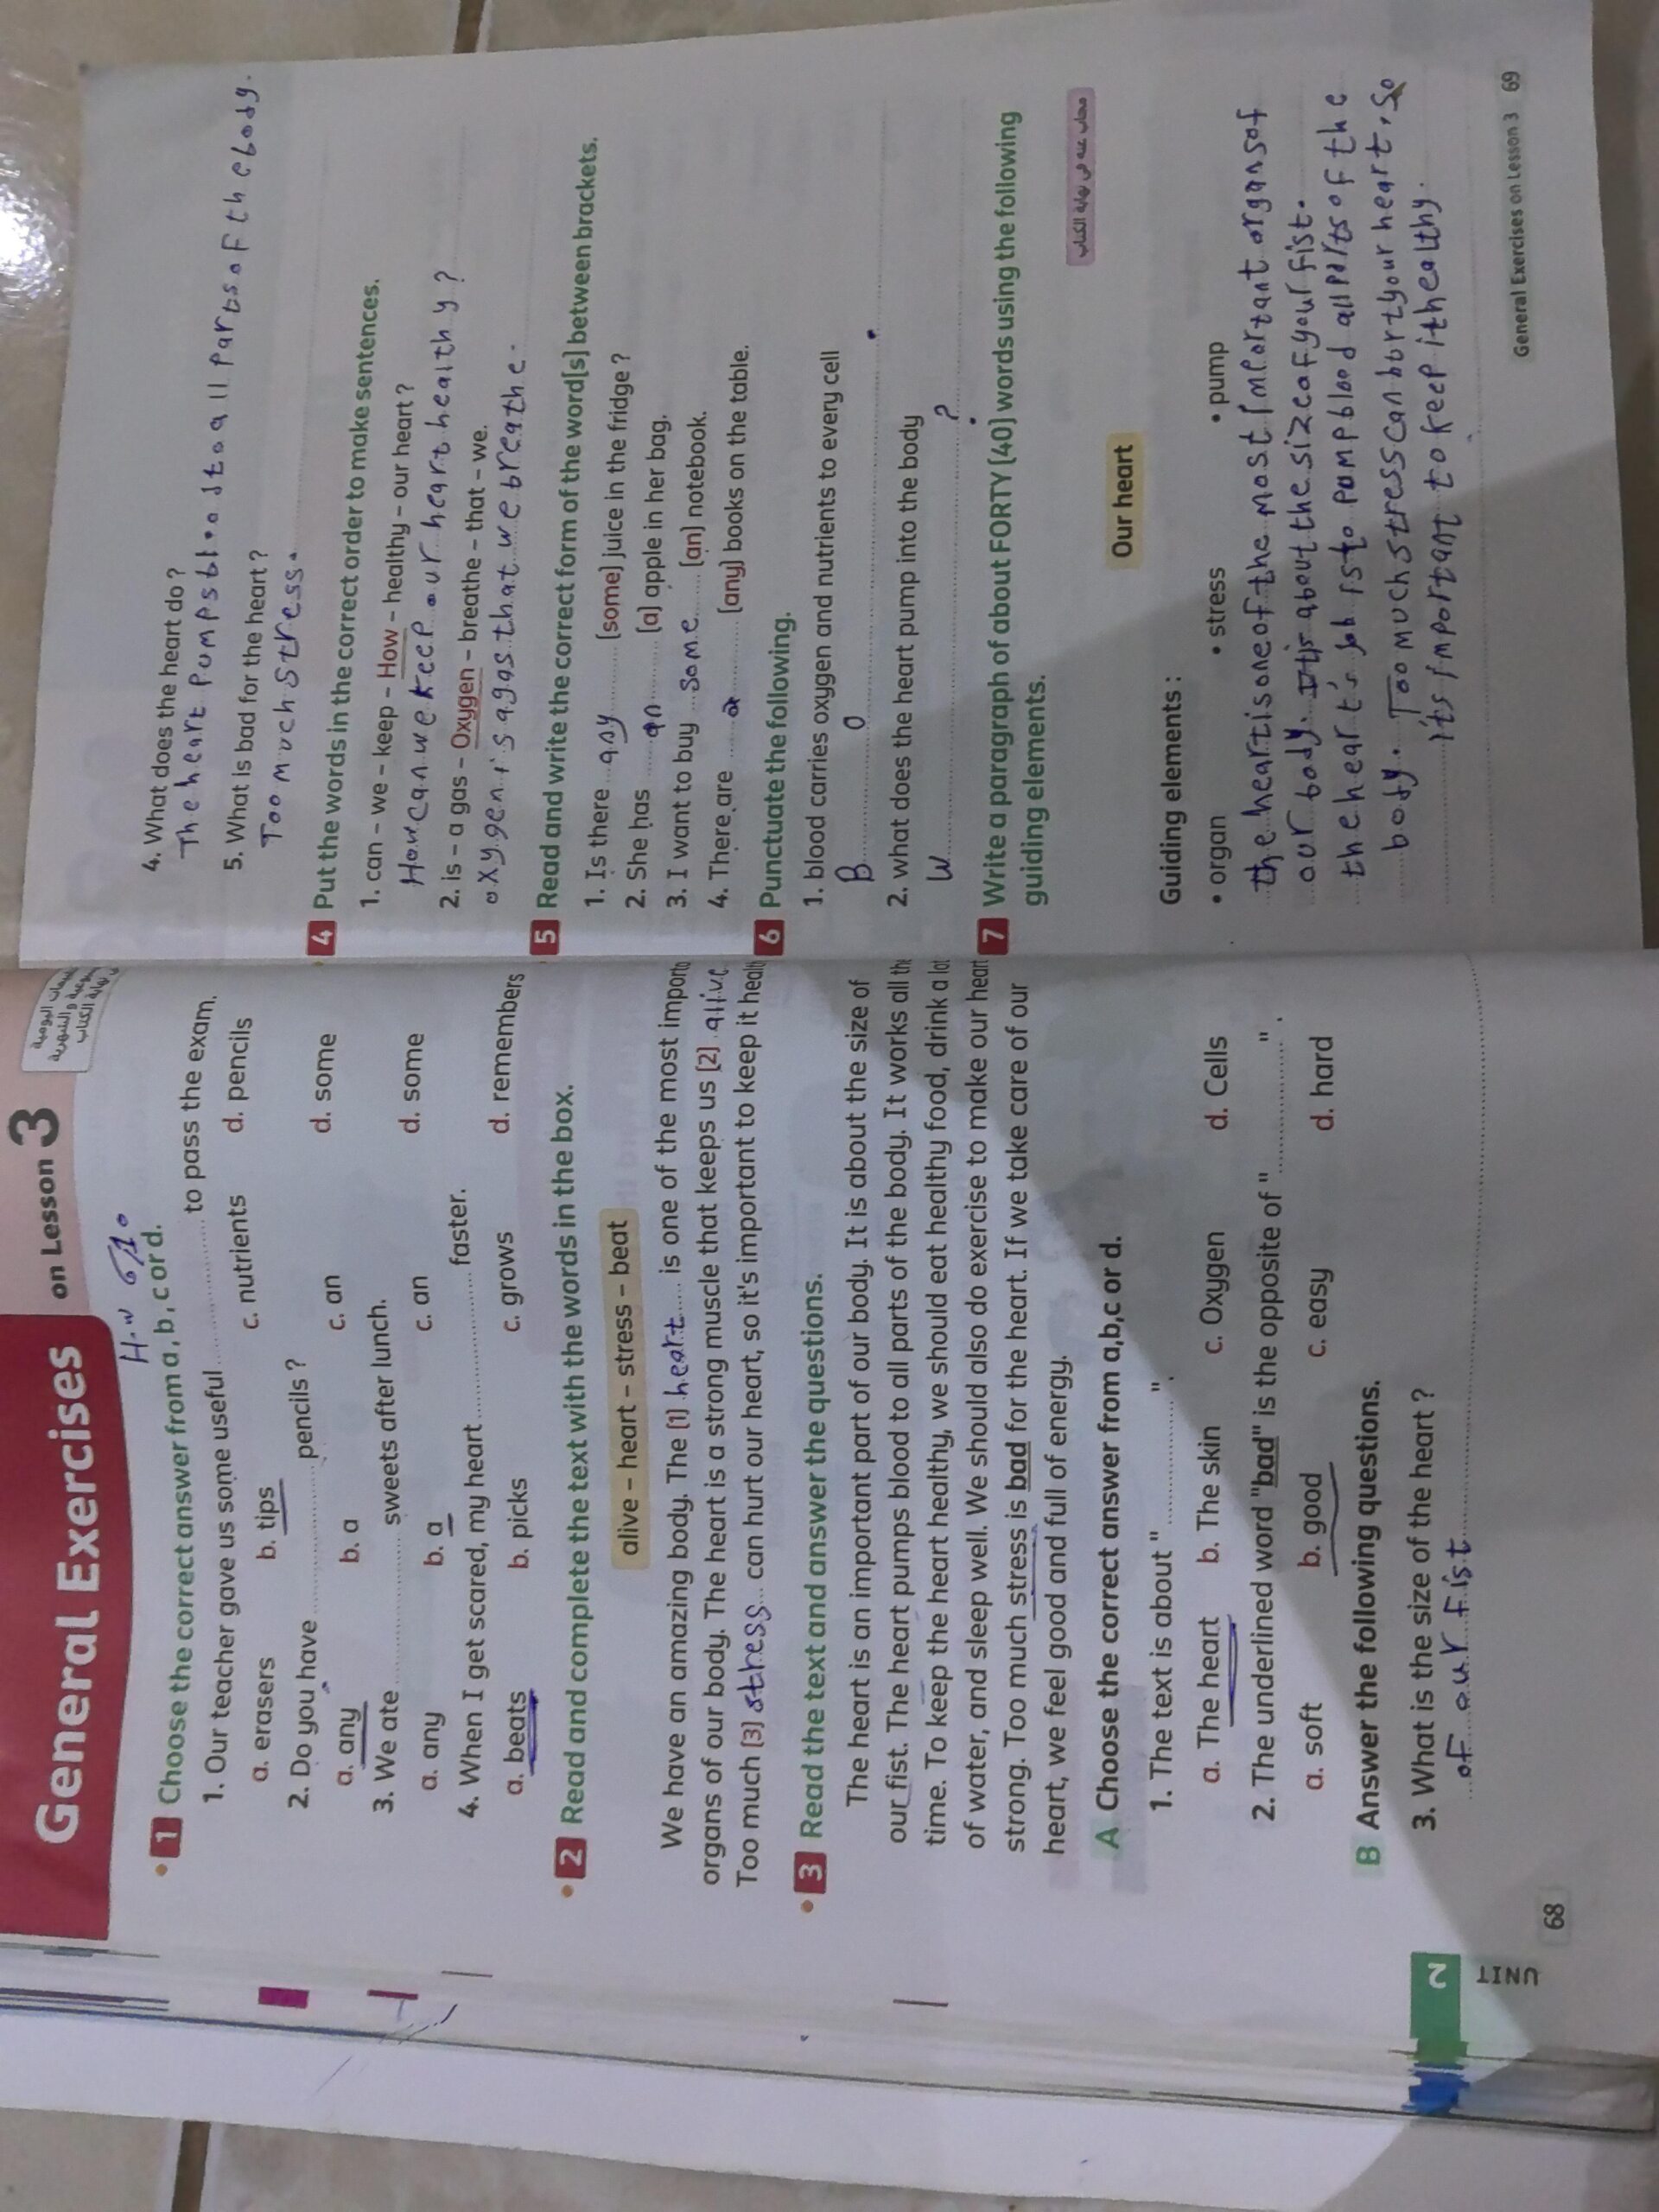 General Exercises on Lesson 3
H.w
1 Choose the correct answer from a, b, c or d.
1. Our teacher gave us some useful .................... to pass the exam.
a. erasers b. tips c. nutrients d. pencils
2. Do you have .................... pencils ?
a. any b. a c. an d. some
3. We ate .................... sweets after lunch.
a. any b. a c. an d. some
4. When I get scared, my heart .................... faster.
a. beats b. picks c. grows d. remembers
2 Read and complete the text with the words in the box.
alive – heart – stress – beat
We have an amazing body. The [1] heart is one of the most importa
organs of our body. The heart is a strong muscle that keeps us [2] alive
Too much [3] stress can hurt our heart, so it's important to keep it health
3 Read the text and answer the questions.
The heart is an important part of our body. It is about the size of
our fist. The heart pumps blood to all parts of the body. It works all the
time. To keep the heart healthy, we should eat healthy food, drink a lot
of water, and sleep well. We should also do exercise to make our heart
strong. Too much stress is bad for the heart. If we take care of our
heart, we feel good and full of energy.
A Choose the correct answer from a,b,c or d.
1. The text is about "....................".
a. The heart b. The skin c. Oxygen d. Cells
2. The underlined word "bad" is the opposite of "....................".
a. soft b. good c. easy d. hard
B Answer the following questions.
3. What is the size of the heart ?
of our fist
UNIT 2
68
4. What does the heart do ?
The heart Pumps blood to all Parts of the body.
5. What is bad for the heart ?
Too much stress.
4 Put the words in the correct order to make sentences.
1. can – we – keep – How – healthy – our heart ?
How can we keep our heart healthy ?
2. is – a gas – Oxygen – breathe – that – we.
oxygen is a gas that we breathe.
5 Read and write the correct form of the word[s] between brackets.
1. Is there any [some] juice in the fridge ?
2. She has an [a] apple in her bag.
3. I want to buy some [an] notebook.
4. There are a [any] books on the table.
6 Punctuate the following.
1. blood carries oxygen and nutrients to every cell
B O .
2. what does the heart pump into the body
W ?
7 Write a paragraph of about FORTY [40] words using the following
guiding elements.
مجاب عنه في نهاية الكتاب
Our heart
Guiding elements :
• organ • stress • pump
the heart is one of the most important organs of
our body. It is about the size of your fist.
the heart's job is to pump blood all parts of the
body. Too much stress can hurt your heart, so
it's important to keep it healthy.
General Exercises on Lesson 3 69